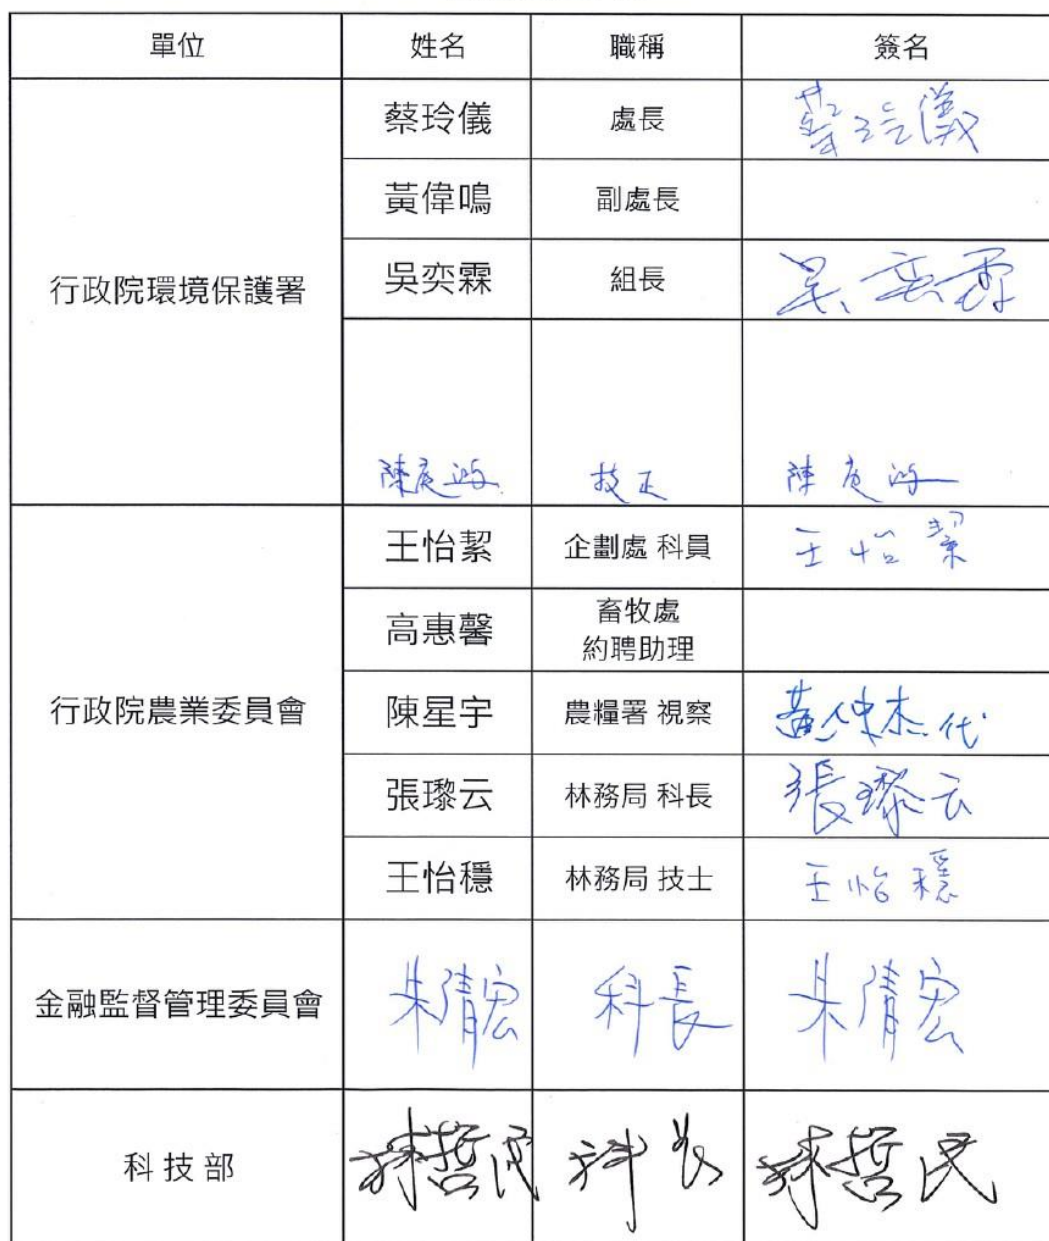 單位 姓名 職稱 簽名
行政院環境保護署
蔡玲儀 處長 蔡玲儀
黃偉鳴 副處長
吳奕霖 組長 吳奕霖
技正
行政院農業委員會
王怡絜 企劃處 科員 王怡絜
高惠馨 畜牧處
約聘助理
陳星宇 農糧署 視察 黃仲杰代
張瓈云 林務局 科長 張瓈云
王怡穩 林務局 技士 王怡穩
金融監督管理委員會 朱清宏 科長 朱清宏
科技部 林哲民 科長 林哲民